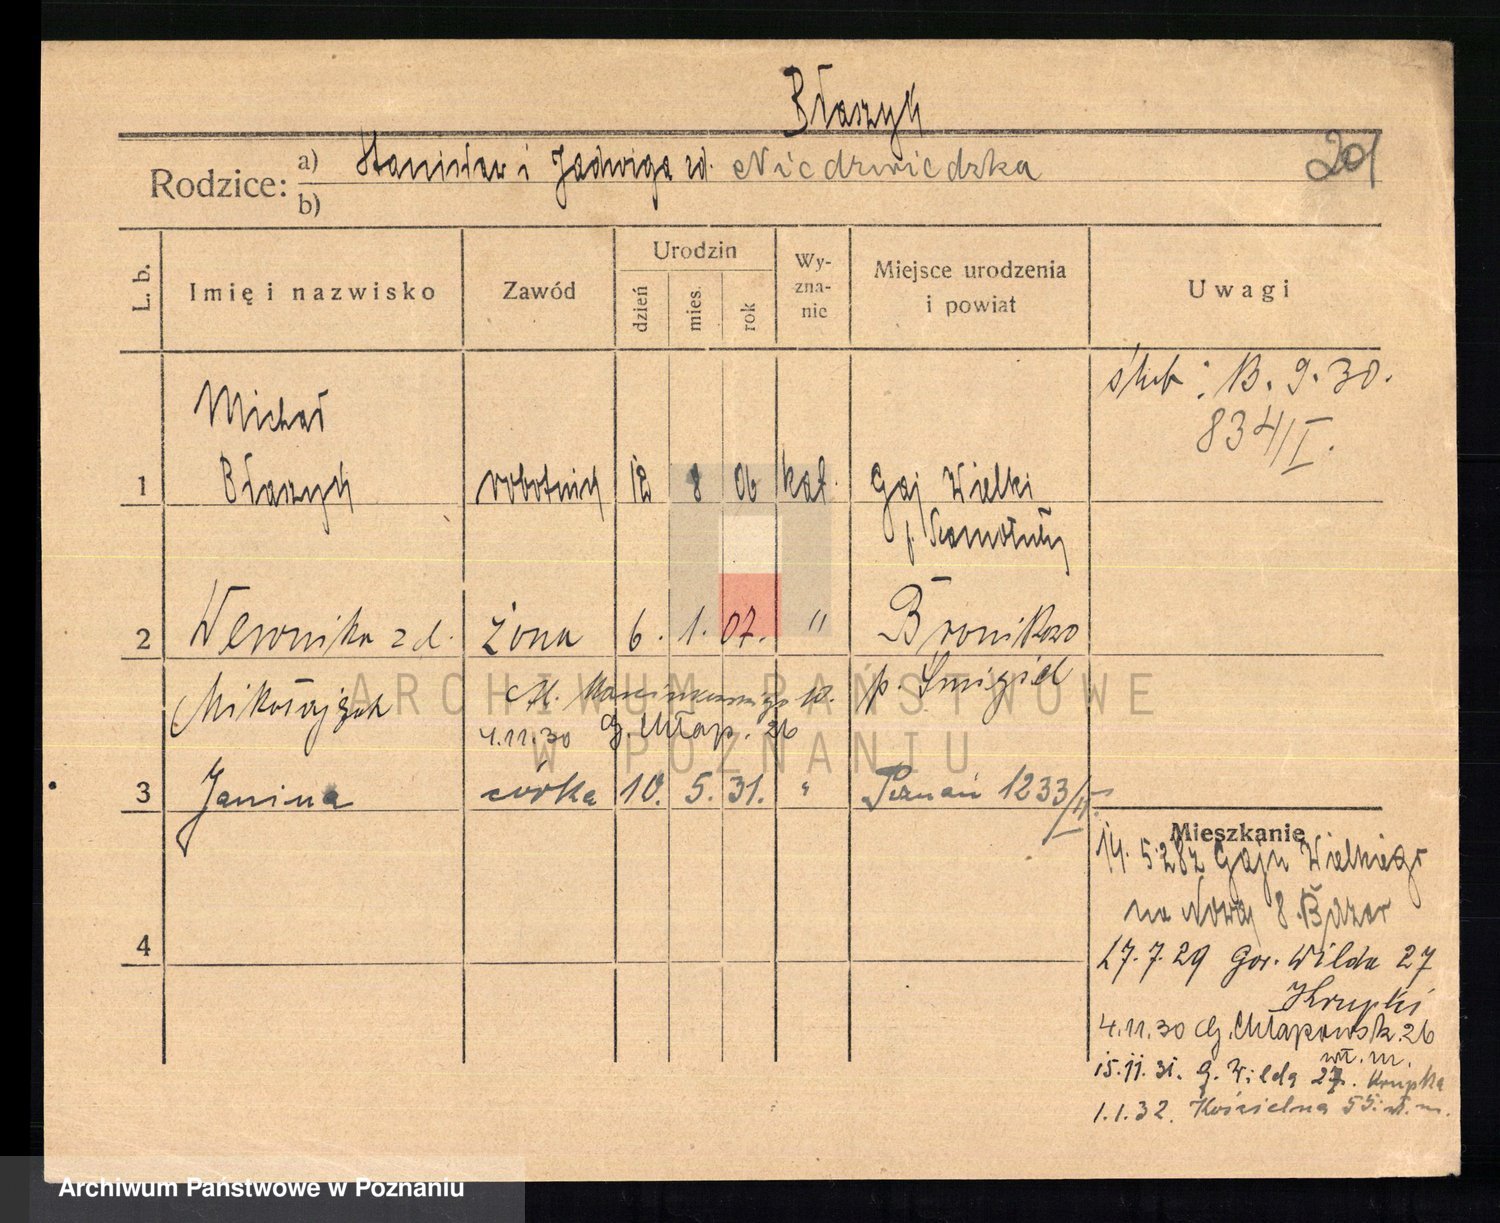 Błaszyk
Rodzice: a) Stanisław i Jadwiga zd. Niedzwiedzka
b)
201
L. b. Imię i nazwisko Zawód Urodzin dzień mies. rok Wy-zna-nie Miejsce urodzenia i powiat Uwagi
ślub: 13. 9. 30.
834/I.
Michał
1 Błaszyk robotnik 12 8 06 kat. Gaj Wielki
p. Szamotuły
2 Weronika zd. żona 6. 1. 07. " Bronikowo
Mikołajczak p. Śmigiel
4.11.30 G. Chłap. 26
3 Janina córka 10. 5. 31. " Poznań 1233/II.
Mieszkanie
14. 5 28 z Gaju Wielkiego
na Nową 8 Bazar
17. 7. 29 Gór. Wilda 27
Krupki
4.11.30 G. Chłapowsk. 26
wł. m.
15. 11. 31. G. Wilda 27. Krupka
1. 1. 32. Kościelna 55. wł. m.
4
ARCHIWUM PAŃSTWOWE
W POZNANIU
Archiwum Państwowe w Poznaniu